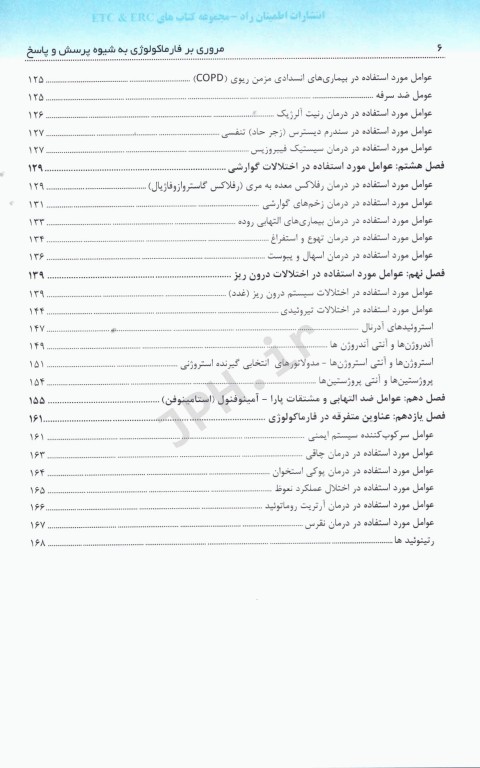 انتشارات اطمینان راد - مجموعه کتاب های ETC & ERC
۶ مروری بر فارماکولوژی به شیوه پرسش و پاسخ
عوامل مورد استفاده در بیماری‌های انسدادی مزمن ریوی (COPD) ۱۲۵
عومل ضد سرفه ۱۲۵
عوامل مورد استفاده در درمان رنیت آلرژیک ۱۲۶
عوامل مورد استفاده در سندرم دیسترس (زجر حاد) تنفسی ۱۲۷
عوامل مورد استفاده در درمان سیستیک فیبروزیس ۱۲۷
فصل هشتم: عوامل مورد استفاده در اختلالات گوارشی ۱۲۹
عوامل مورد استفاده در درمان رفلاکس معده به مری (رفلاکس گاستروازوفاژیال) ۱۲۹
عوامل مورد استفاده در درمان زخم‌های گوارشی ۱۳۱
عوامل مورد استفاده در درمان بیماری‌های التهابی روده ۱۳۳
عوامل مورد استفاده در درمان تهوع و استفراغ ۱۳۴
عوامل مورد استفاده در درمان اسهال و یبوست ۱۳۶
فصل نهم: عوامل مورد استفاده در اختلالات درون ریز ۱۳۹
عوامل مورد استفاده در اختلالات سیستم درون ریز (غدد) ۱۳۹
عوامل مورد استفاده در اختلالات تیروئیدی ۱۴۴
استروئیدهای آدرنال ۱۴۷
آندروژن‌ها و آنتی آندروژن ها ۱۴۹
استروژن‌ها و آنتی استروژن‌ها - مدولاتورهای انتخابی گیرنده استروژنی ۱۵۱
پروژستین‌ها و آنتی پروژستین‌ها ۱۵۴
فصل دهم: عوامل ضد التهابی و مشتقات پارا - آمینوفنول (استامینوفن) ۱۵۵
فصل یازدهم: عناوین متفرقه در فارماکولوژی ۱۶۱
عوامل سرکوب‌کننده سیستم ایمنی ۱۶۱
عوامل مورد استفاده در درمان چاقی ۱۶۳
عوامل مورد استفاده در درمان پوکی استخوان ۱۶۴
عوامل مورد استفاده در اختلال عملکرد نعوظ ۱۶۵
عوامل مورد استفاده در درمان آرتریت روماتوئید ۱۶۶
عوامل مورد استفاده در درمان نقرس ۱۶۷
رتینوئید ها ۱۶۸
JPH.ir